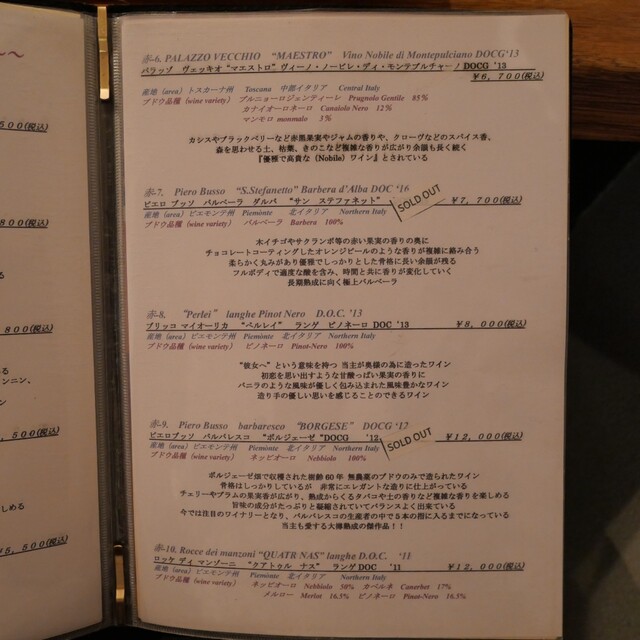 500(税込)
800(税込)
800(税込)
500(税込)
しめる
5,500(税込)
赤-6. PALAZZO VECCHIO “MAESTRO” Vino Nobile di Montepulciano DOCG‘13
パラッゾ ヴェッキオ “マエストロ” ヴィーノ・ノービレ・ディ・モンテプルチャーノ DOCG '13
¥6,700(税込)
産地 (area) トスカーナ州 Toscana 中部イタリア Central Italy
ブドウ品種 (wine variety) プルニョーロジェンティーレ Prugnolo Gentile 85%
カナイオーロネーロ Canaiolo Nero 12%
マンモロ mammolo 3%
カシスやブラックベリーなど赤黒果実やジャムの香りや、クローヴなどのスパイス香、
森を思わせる土、枯葉、きのこなど複雑な香りが広がり余韻も長く続く
『優種で高貴な (Nobile) ワイン』とされている
赤-7. Piero Busso “S.Stefanetto” Barbera d’Alba DOC ‘16
ピエロ ブッソ バルベーラ ダルバ “サン ステファネット”
SOLD OUT
¥7,700(税込)
産地 (area) ピエモンテ州 Piemonte 北イタリア Northern Italy
ブドウ品種 (wine variety) バルベーラ Barbera 100%
木イチゴやサクランボ等の赤い果実の香りの奥に
チョコレートコーティングしたオレンジピールのような香りが複雑に絡み合う
柔らかく丸みがあり優種でしっかりとした骨格に長い余韻が残る
フルボディで適度な酸を含み、時間と共に香りが変化していく
長期熟成に向く極上バルベーラ
赤-8. “Perlei” langhe Pinot Nero D.O.C. ‘13
ブリッコ マイオーリカ “ペルレイ” ランゲ ピノネーロ DOC '13
¥8,000(税込)
産地 (area) ピエモンテ州 Piemonte 北イタリア Northern Italy
ブドウ品種 (wine variety) ピノネーロ Pinot-Nero 100%
“彼女へ” という意味を持つ 当主が奥様の為に造ったワイン
初恋を思い出すような甘酸っぱい果実の香りに
バニラのような風味が優しく包み込まれた風味豊かなワイン
造り手の優しい思いを感じることのできるワイン
赤-9. Piero Busso barbaresco “BORGESE” DOCG ‘12
ピエロブッソ バルバレスコ “ボルジェーゼ” DOCG '12
SOLD OUT
¥12,000(税込)
産地 (area) ピエモンテ州 Piemonte 北イタリア Northern Italy
ブドウ品種 (wine variety) ネッビオーロ Nebbiolo 100%
ボルジェーゼ畑で収穫された樹齢60年 無農薬のブドウのみで造られたワイン
骨格はしっかりしているが 非常にエレガントな造りに仕上がっている
チェリーやプラムの果実香が広がり、熟成からくるタバコや土の香りなど複雑な香りを楽しめる
旨味の成分がたっぷりと凝縮されていてバランスよく出来ている
今では注目のワイナリーとなり、バルバレスコの生産者の中で5本の指に入るまでになっている
当主も愛する大傳熟成の傑作品！！
赤-10. Rocce dei manzoni “QUATR NAS” langhe D.O.C. ‘11
ロッケ ディ マンゾーニ “クアトゥル ナス” ランゲ DOC '11
¥12,000(税込)
産地 (area) ピエモンテ州 Piemonte 北イタリア Northern Italy
ブドウ品種 (wine variety) ネッビオーロ Nebbiolo 50% カベルネ Canerbet 17%
メルロー Merlot 16.5% ピノネーロ Pinot-Nero 16.5%